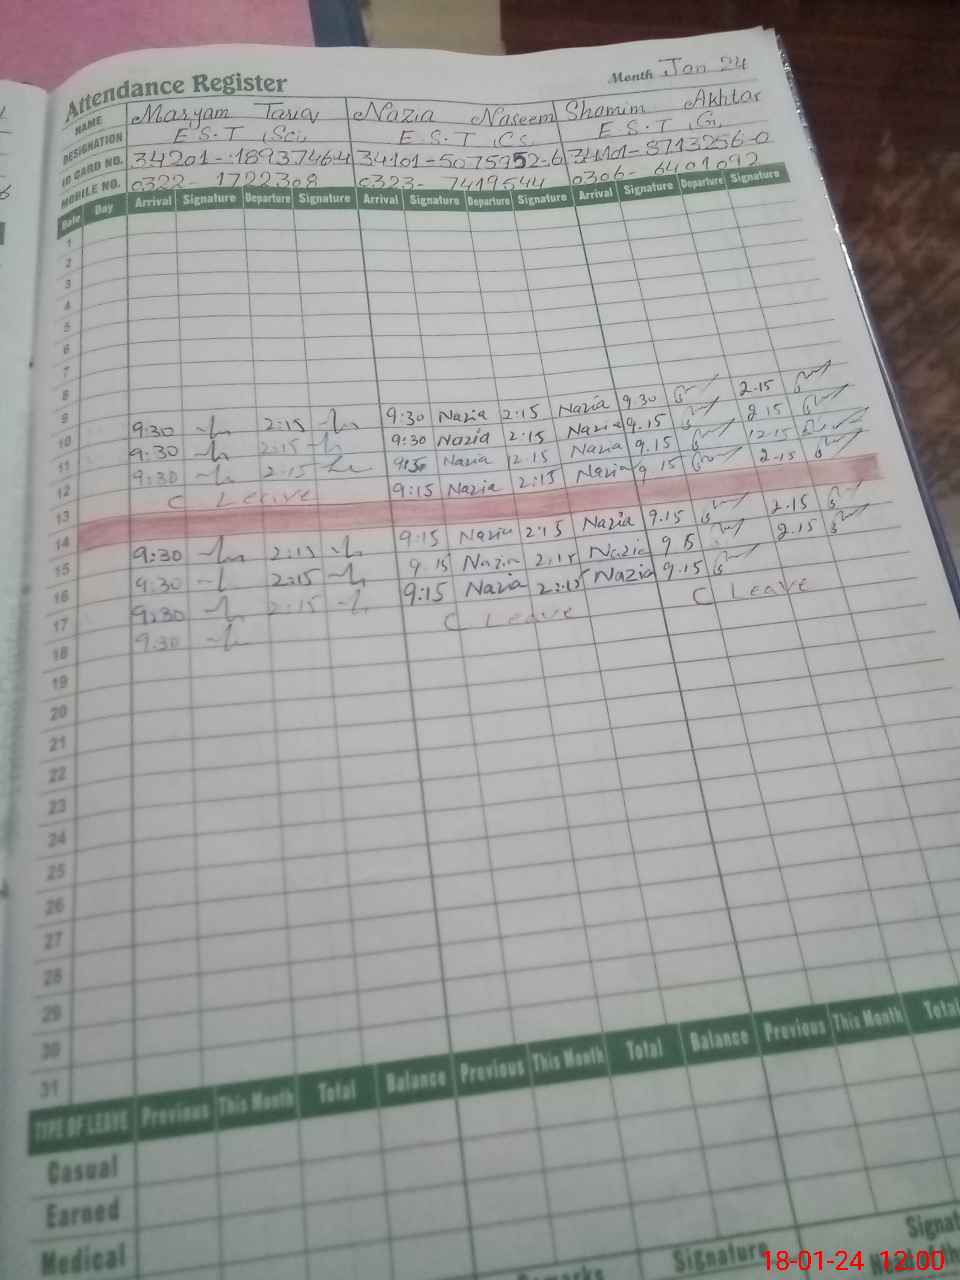 Attendance Register Month Jan 24
NAME Maryam Tariq Nazia Naseem Shamim Akhtar
DESIGNATION E.S.T Sci, E.S.T Cs. E.S.T G,
ID CARD NO. 34101-5075952-6 34101-3713256-0
MOBILE NO. 0322-1722308 0323-7419544 0306-6401092
Date Day Arrival Signature Departure Signature Arrival Signature Departure Signature Arrival Signature Departure Signature
1
2
3
4
5
6
7
8
9 9:30 2:15 9:30 Nazia 2:15 Nazia 9.30 2.15
10 9:30 2:15 9:30 Nazia 2:15 Nazia 9.15 2.15
11 9:30 2:15 Nazia 12.15 Nazia 9.15 12.15
12 C Leave 9:15 Nazia 2:15 Nazia 9.15 2.15
13
14
15 9:30 2:15 9:15 Nazia 2:15 Nazia 9.15 2.15
16 9:30 2:15 9.15 Nazia 2:15 Nazia 9.5 2.15
17 9:30 2:15 9:15 Nazia Nazia 9.15
18 9:30 C Leave C Leave
19
20
21
22
23
24
25
26
27
28
29
30
31
TYPE OF LEAVE Previous This Month Total Balance Previous This Month Total Balance Previous This Month Total
Casual
Earned
Medical
Signature
18-01-24 12:00